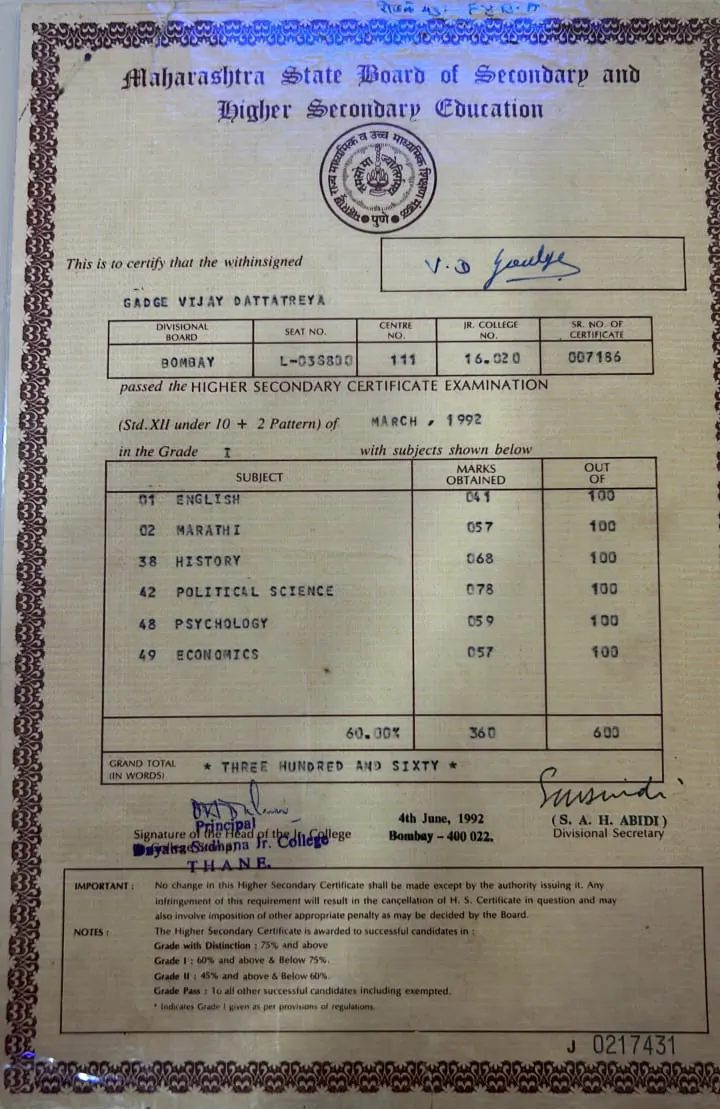 Maharashtra State Board of Secondary and
Higher Secondary Education
महाराष्ट्र राज्य माध्यमिक व उच्च माध्यमिक शिक्षण मंडळ
पुणे
This is to certify that the withinsigned
V. D
GADGE VIJAY DATTATREYA
DIVISIONAL BOARD SEAT NO. CENTRE NO. JR. COLLEGE NO. SR. NO. OF CERTIFICATE
BOMBAY 111 16.020 007186
passed the HIGHER SECONDARY CERTIFICATE EXAMINATION
(Std. XII under 10 + 2 Pattern) of MARCH , 1992
in the Grade I with subjects shown below
SUBJECT MARKS OBTAINED OUT OF
01 ENGLISH 041 100
02 MARATHI 057 100
38 HISTORY 068 100
42 POLITICAL SCIENCE 078 100
48 PSYCHOLOGY 059 100
49 ECONOMICS 057 100
60.00% 360 600
GRAND TOTAL (IN WORDS) * THREE HUNDRED AND SIXTY *
Principal
Signature of the Head of the Jr. College
Sidhana Jr. College
THANE.
4th June, 1992
Bombay – 400 022.
(S. A. H. ABIDI)
Divisional Secretary
IMPORTANT : No change in this Higher Secondary Certificate shall be made except by the authority issuing it. Any
infringement of this requirement will result in the cancellation of H. S. Certificate in question and may
also involve imposition of other appropriate penalty as may be decided by the Board.
NOTES : The Higher Secondary Certificate is awarded to successful candidates in :
Grade with Distinction : 75% and above
Grade I : 60% and above & Below 75%.
Grade II : 45% and above & Below 60%.
Grade Pass : To all other successful candidates including exempted.
* Indicates Grade I given as per provisions of regulations.
J 0217431